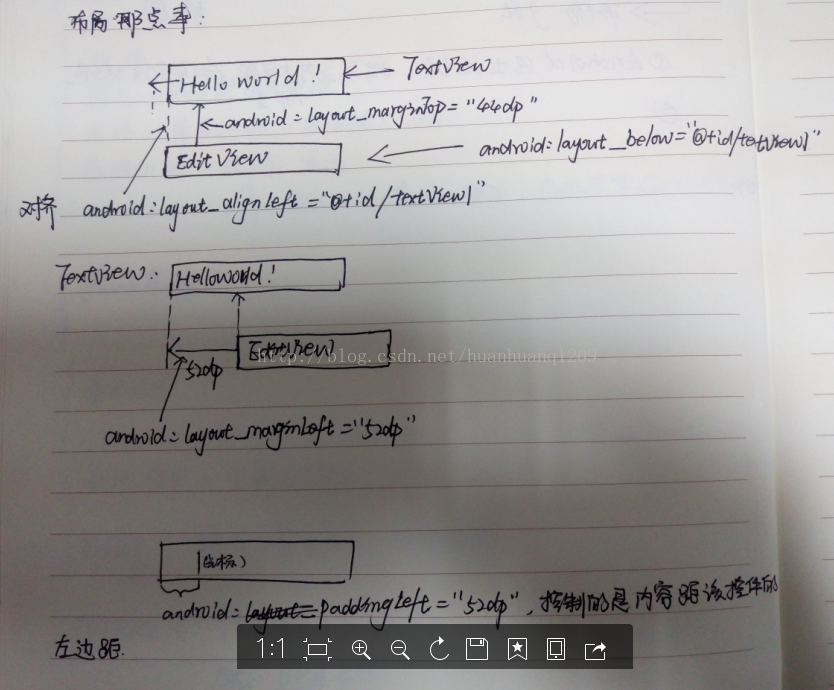 布局那点事:
Hello world!
TextView
android:layout_marginTop="44dp"
EditView
android:layout_below="@+id/textView1"
对齐 android:layout_alignLeft="@+id/textView1"
TextView:
Helloworld!
EditView
http://blog.csdn.net/huanhuanq1209
52dp
android:layout_marginLeft="52dp"
android:paddingLeft="52dp",控制的是内容距该控件的
左边距.
1:1